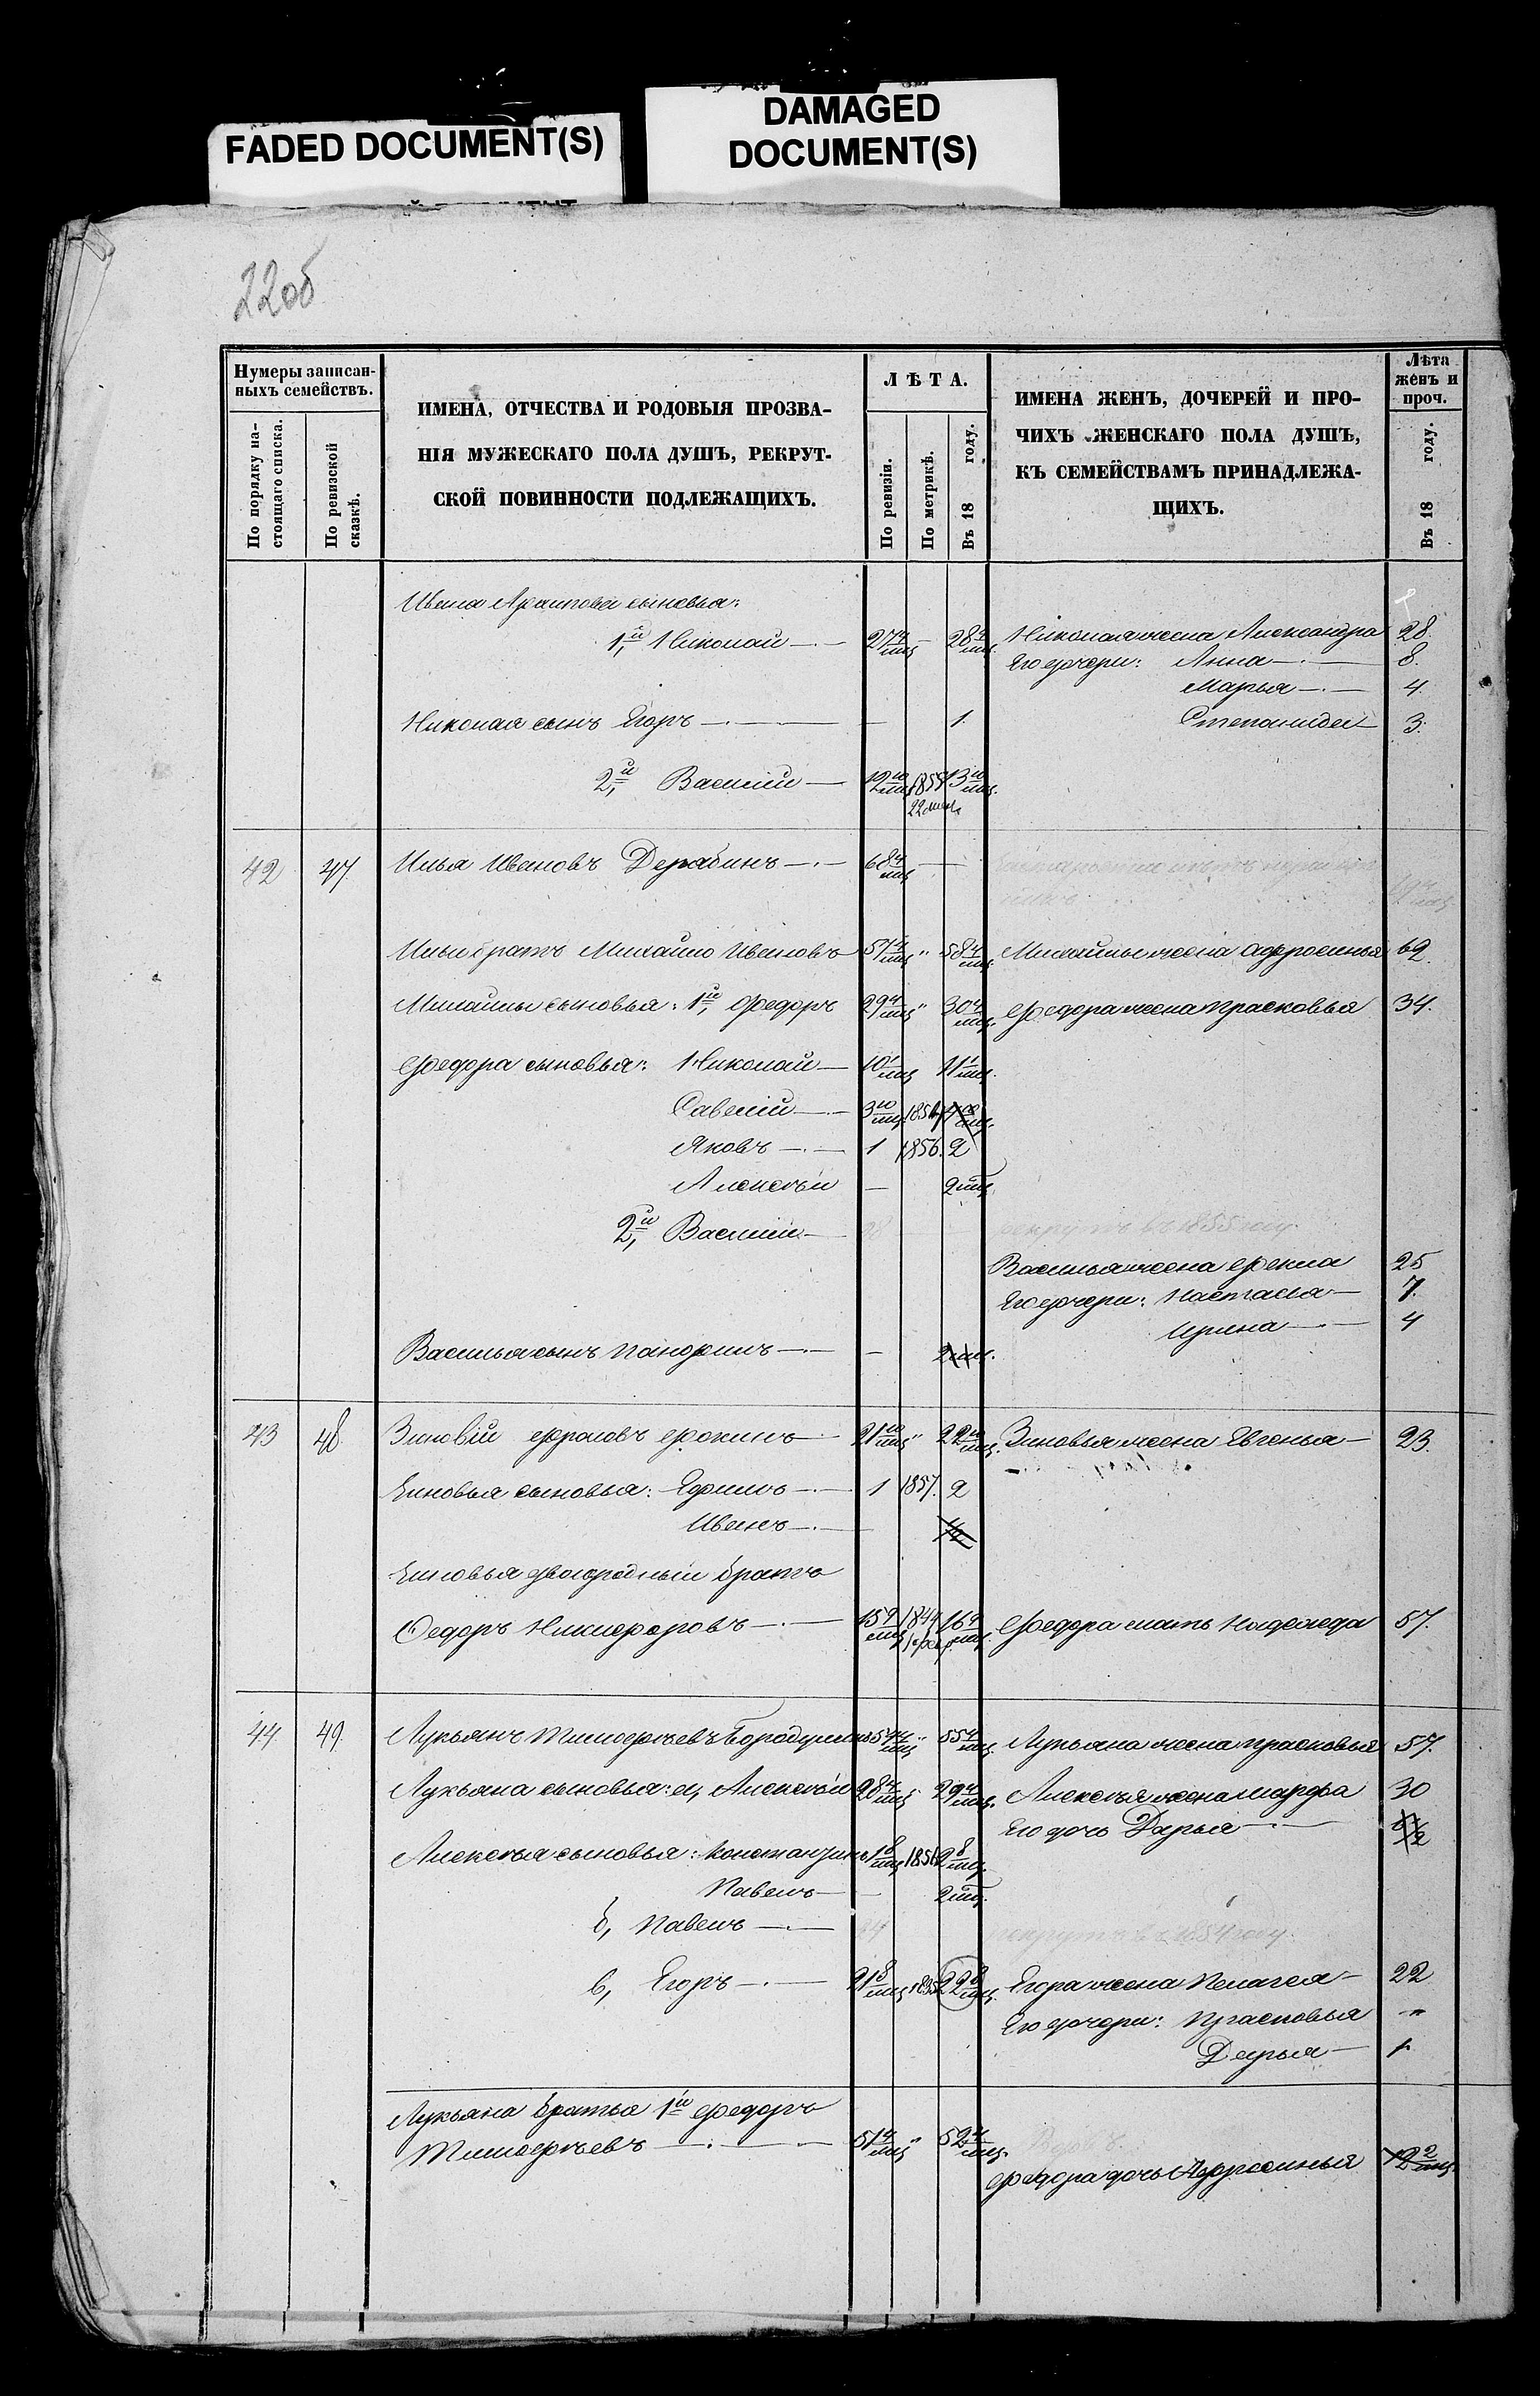 FADED DOCUMENT(S)
DAMAGED
DOCUMENT(S)
22об
Нумеры записан-
ныхъ семействъ.
По порядку на-
стоящаго списка.
По ревизской
сказкѣ.
ИМЕНА, ОТЧЕСТВА И РОДОВЫЯ ПРОЗВА-
НІЯ МУЖЕСКАГО ПОЛА ДУШЪ, РЕКРУТ-
СКОЙ ПОВИННОСТИ ПОДЛЕЖАЩИХЪ.
ЛѢТА.
По ревизіи.
По метрикѣ.
Въ 18 году.
ИМЕНА ЖЕНЪ, ДОЧЕРЕЙ И ПРО-
ЧИХЪ ЖЕНСКАГО ПОЛА ДУШЪ,
КЪ СЕМЕЙСТВАМЪ ПРИНАДЛЕЖА-
ЩИХЪ.
Лѣта
женъ и
проч.
Въ 18 году.
Ивана сыновья:
1й, Николай 27 4/мѣс 28 4/мѣс. Николая жена Александра 28.
Его дочери: Анна 8.
Марья 4
Николая сынъ Егоръ — 1. Степанида 3.
2й, Василій 12 10/мѣс 1855 13 10/мѣс.
42 47 Илья Ивановъ Дерябинъ 68 4/мѣс
Ильи братъ Михайло Ивановъ 57 4/мѣс " 58 4/мѣс. Михайлы жена Афросинья 62.
Михайлы сыновья: 1й, Федоръ 29 4/мѣс " 30 4/мѣс. Федора жена Прасковья 34.
Федора сыновья: Николай 10 1/мѣс 11 1/мѣс.
Савелій 3 10/мѣс 1854
Яковъ 1 1856. 2
Алексѣй — 2 мѣс.
2й, Василій 28 рекрутъ въ 1855 году.
Василья жена Фекла 25
Его дочери: Настасья 7.
Ирина 4
Василья сынъ Панфилъ — 2 мѣс.
43 48 Зиновій Фроловъ Фокинъ 21 10/мѣс " 22 10/мѣс. Зиновья жена Евгенья 23.
Зиновья сыновья: Ефимъ 1 1857. 2
Иванъ — 1/2
Зиновья двоюродный братъ
Федоръ Никифоровъ 15 9/мѣс 1844 16 9/мѣс. Федора мать Надежда 57.
44 49 Лукьянъ Тимофѣевъ 54 4/мѣс " 55 4/мѣс. Лукьяна жена Прасковья 57.
Лукьяна сыновья: а, Алексѣй 28 4/мѣс " 29 4/мѣс. Алексѣя жена Марфа 30
Его дочь Дарья
Алексѣя сыновья: Константинъ 1 8/мѣс 1856 2 8/мѣс.
Павелъ — 2 мѣс.
б, Павелъ 24 рекрутъ въ 1854 году.
в, Егоръ 21 8/мѣс 22 8/мѣс. Егора жена Пелагея 22
Его дочери: Прасковья "
Дарья 1.
Лукьяна братья 1й Федоръ
Тимофѣевъ 51 4/мѣс " 52 4/мѣс. Вдовъ.
Федора дочь Афросинья 12 2/мѣс.